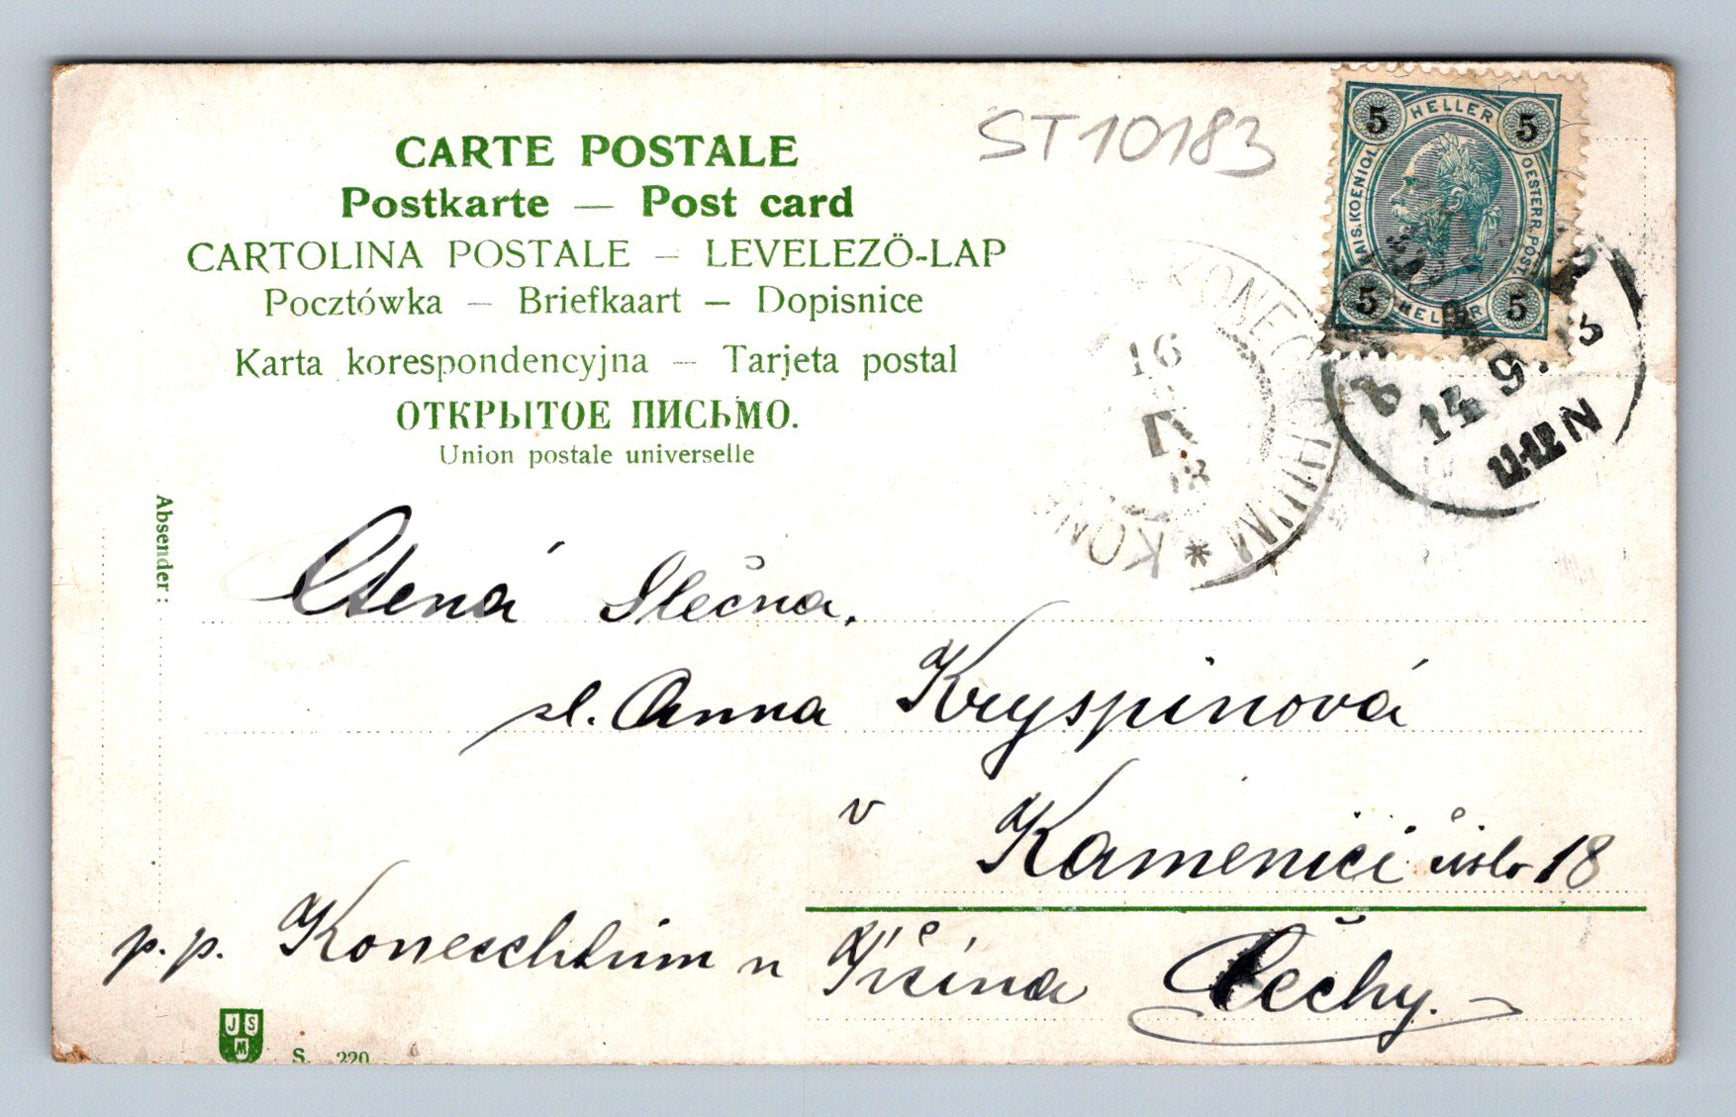 CARTE POSTALE
Postkarte — Post card
CARTOLINA POSTALE — LEVELEZÖ-LAP
Pocztówka — Briefkaart — Dopisnice
Karta korespondencyjna — Tarjeta postal
ОТКРЫТОЕ ПИСЬМО.
Union postale universelle
ST10183
5 HELLER 5
KAIS. KOENIGL OESTERR. POST
5 HELLER 5
16
IX
KONE
* KON
8
14 9.
11-12 N
Absender:
Ctená Slečna,
sl. Anna Kryspinová
v Kamenici číslo 18
p.p. Koneschlum u Jičína Čechy.
JSM
S. 220